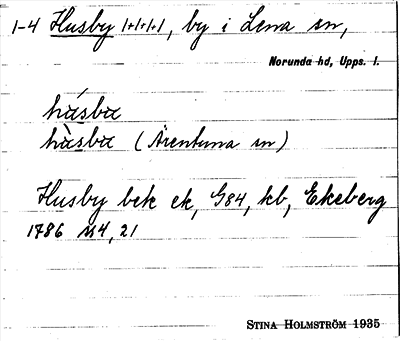 1-4 Husby 1+1+1+1, by i Lena sn,
Norunda hd, Upps. l.
hu̇́sba
hu̇̀sba (Ärentuna sn)
Husby bek ek, G84, kb, Ekeberg
1786 N4, 21
STINA HOLMSTRÖM 1935